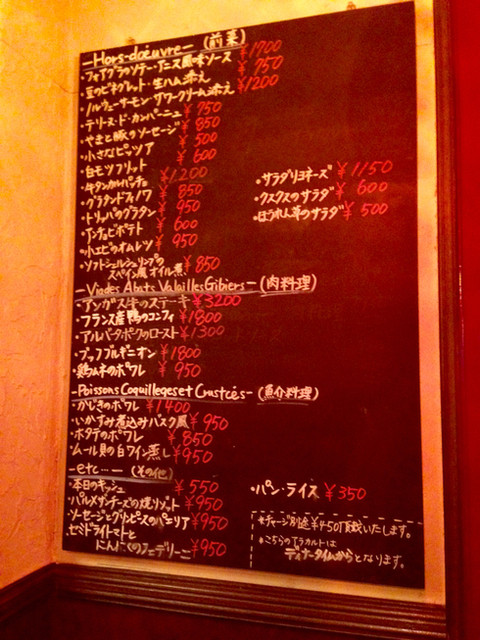 —Hors-doeuvre— (前菜)
・フォアグラのソテー・アニス風味ソース ¥1700
・豆のビネグレット・生ハム添え ¥750
・ノルウェーサーモン・サワークリーム添え ¥1200
・テリーヌ・ド・カンパーニュ ¥750
・やきと豚のソーセージ ¥850
・小さなピッツア ¥500
・白モツフリット ¥600
・牛タンカルパッチョ ¥1200
・グラタンドフィノワ ¥850
・トリッパのグラタン ¥950
・アンチョビポテト ¥600
・小エビのオムレツ ¥950
・ソフトシェルシュリンプの
スペイン風オイル煮 ¥850
・サラダリヨネーズ ¥1150
・クスクスのサラダ ¥600
・ほうれん草のサラダ ¥500
—Viades Abats VolaillesGibiers— (肉料理)
・アンガス牛のステーキ ¥3200
・フランス産鴨のコンフィ ¥1800
・アルバータポークのロースト ¥1300
・ブッフブルギニオン ¥1800
・鶏ムネのポワレ ¥950
—Poissons Coquilleges et Crustcés— (魚介料理)
・かじきのポワレ ¥1400
・いかすみ煮込みバスク風 ¥950
・ホタテのポワレ ¥850
・ムール貝の白ワイン蒸し ¥950
—etc…— (その他)
・本日のキッシュ ¥550
・パルメザンチーズの焼リゾット ¥950
・ソーセージとグリンピースのパエリア ¥950
・セミドライトマトと
にんにくのフェデリーニ ¥950
・パン・ライス ¥350
*チャージ別途¥450頂戴いたします。
*こちらのアラカルトは
ディナータイムからとなります。